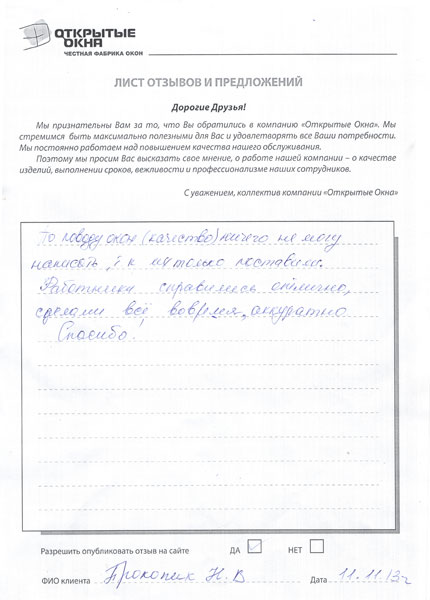 ОТКРЫТЫЕ
ОКНА
ЧЕСТНАЯ ФАБРИКА ОКОН
ЛИСТ ОТЗЫВОВ И ПРЕДЛОЖЕНИЙ
Дорогие Друзья!
Мы признательны Вам за то, что Вы обратились в компанию «Открытые Окна». Мы
стремимся быть максимально полезными для Вас и удовлетворять все Ваши потребности.
Мы постоянно работаем над повышением качества нашего обслуживания.
Поэтому мы просим Вас высказать свое мнение, о работе нашей компании – о качестве
изделий, выполнении сроков, вежливости и профессионализме наших сотрудников.
С уважением, коллектив компании «Открытые Окна»
По поводу окон (качество) ничего не могу
написать, т к их только поставили.
Работники справились отлично,
сделали всё вовремя, аккуратно
Спасибо!
Разрешить опубликовать отзыв на сайте ДА НЕТ
ФИО клиента Прокопик Н. В Дата 11.11.13г